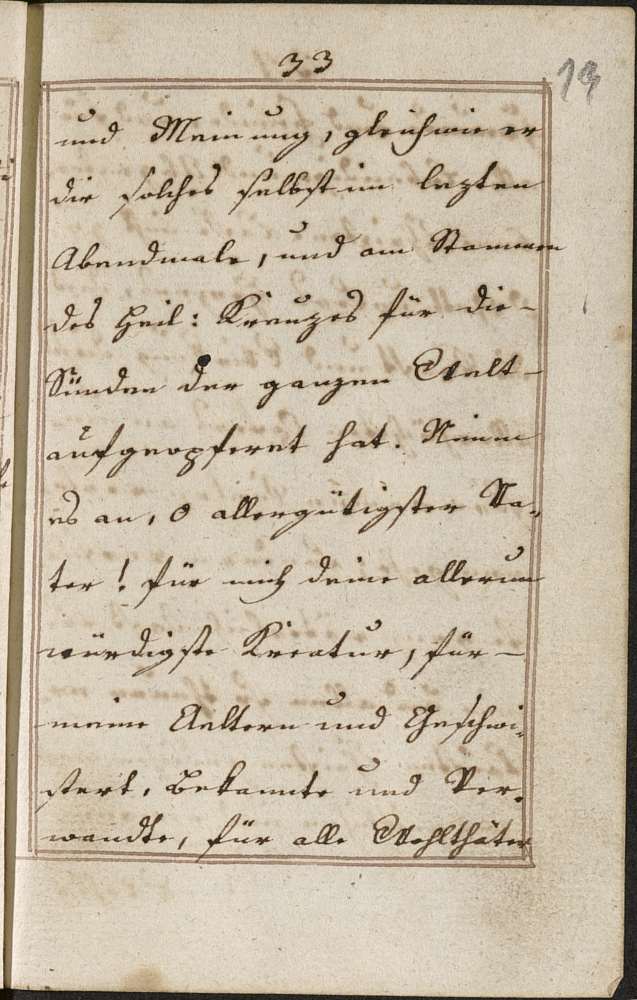 33
19
und Meinung, gleichwie er
dir solches selbst im lezten
Abendmale, und am Stammen
des Heil: Kreuzes für die-
Sünden der ganzen Welt-
aufgeopferet hat. Nimm
es an, o allergütigster Va„
ter! für mich deine allerun
würdigste Kreatur, für-
meine Aeltern und Geschwi„
stert, bekannte und Ver„
wandte, für alle Wohlthäter